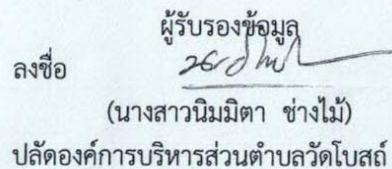 ผู้รับรองข้อมูล
ลงชื่อ
(นางสาวนิมมิตา ช่างไม้)
ปลัดองค์การบริหารส่วนตำบลวัดโบสถ์